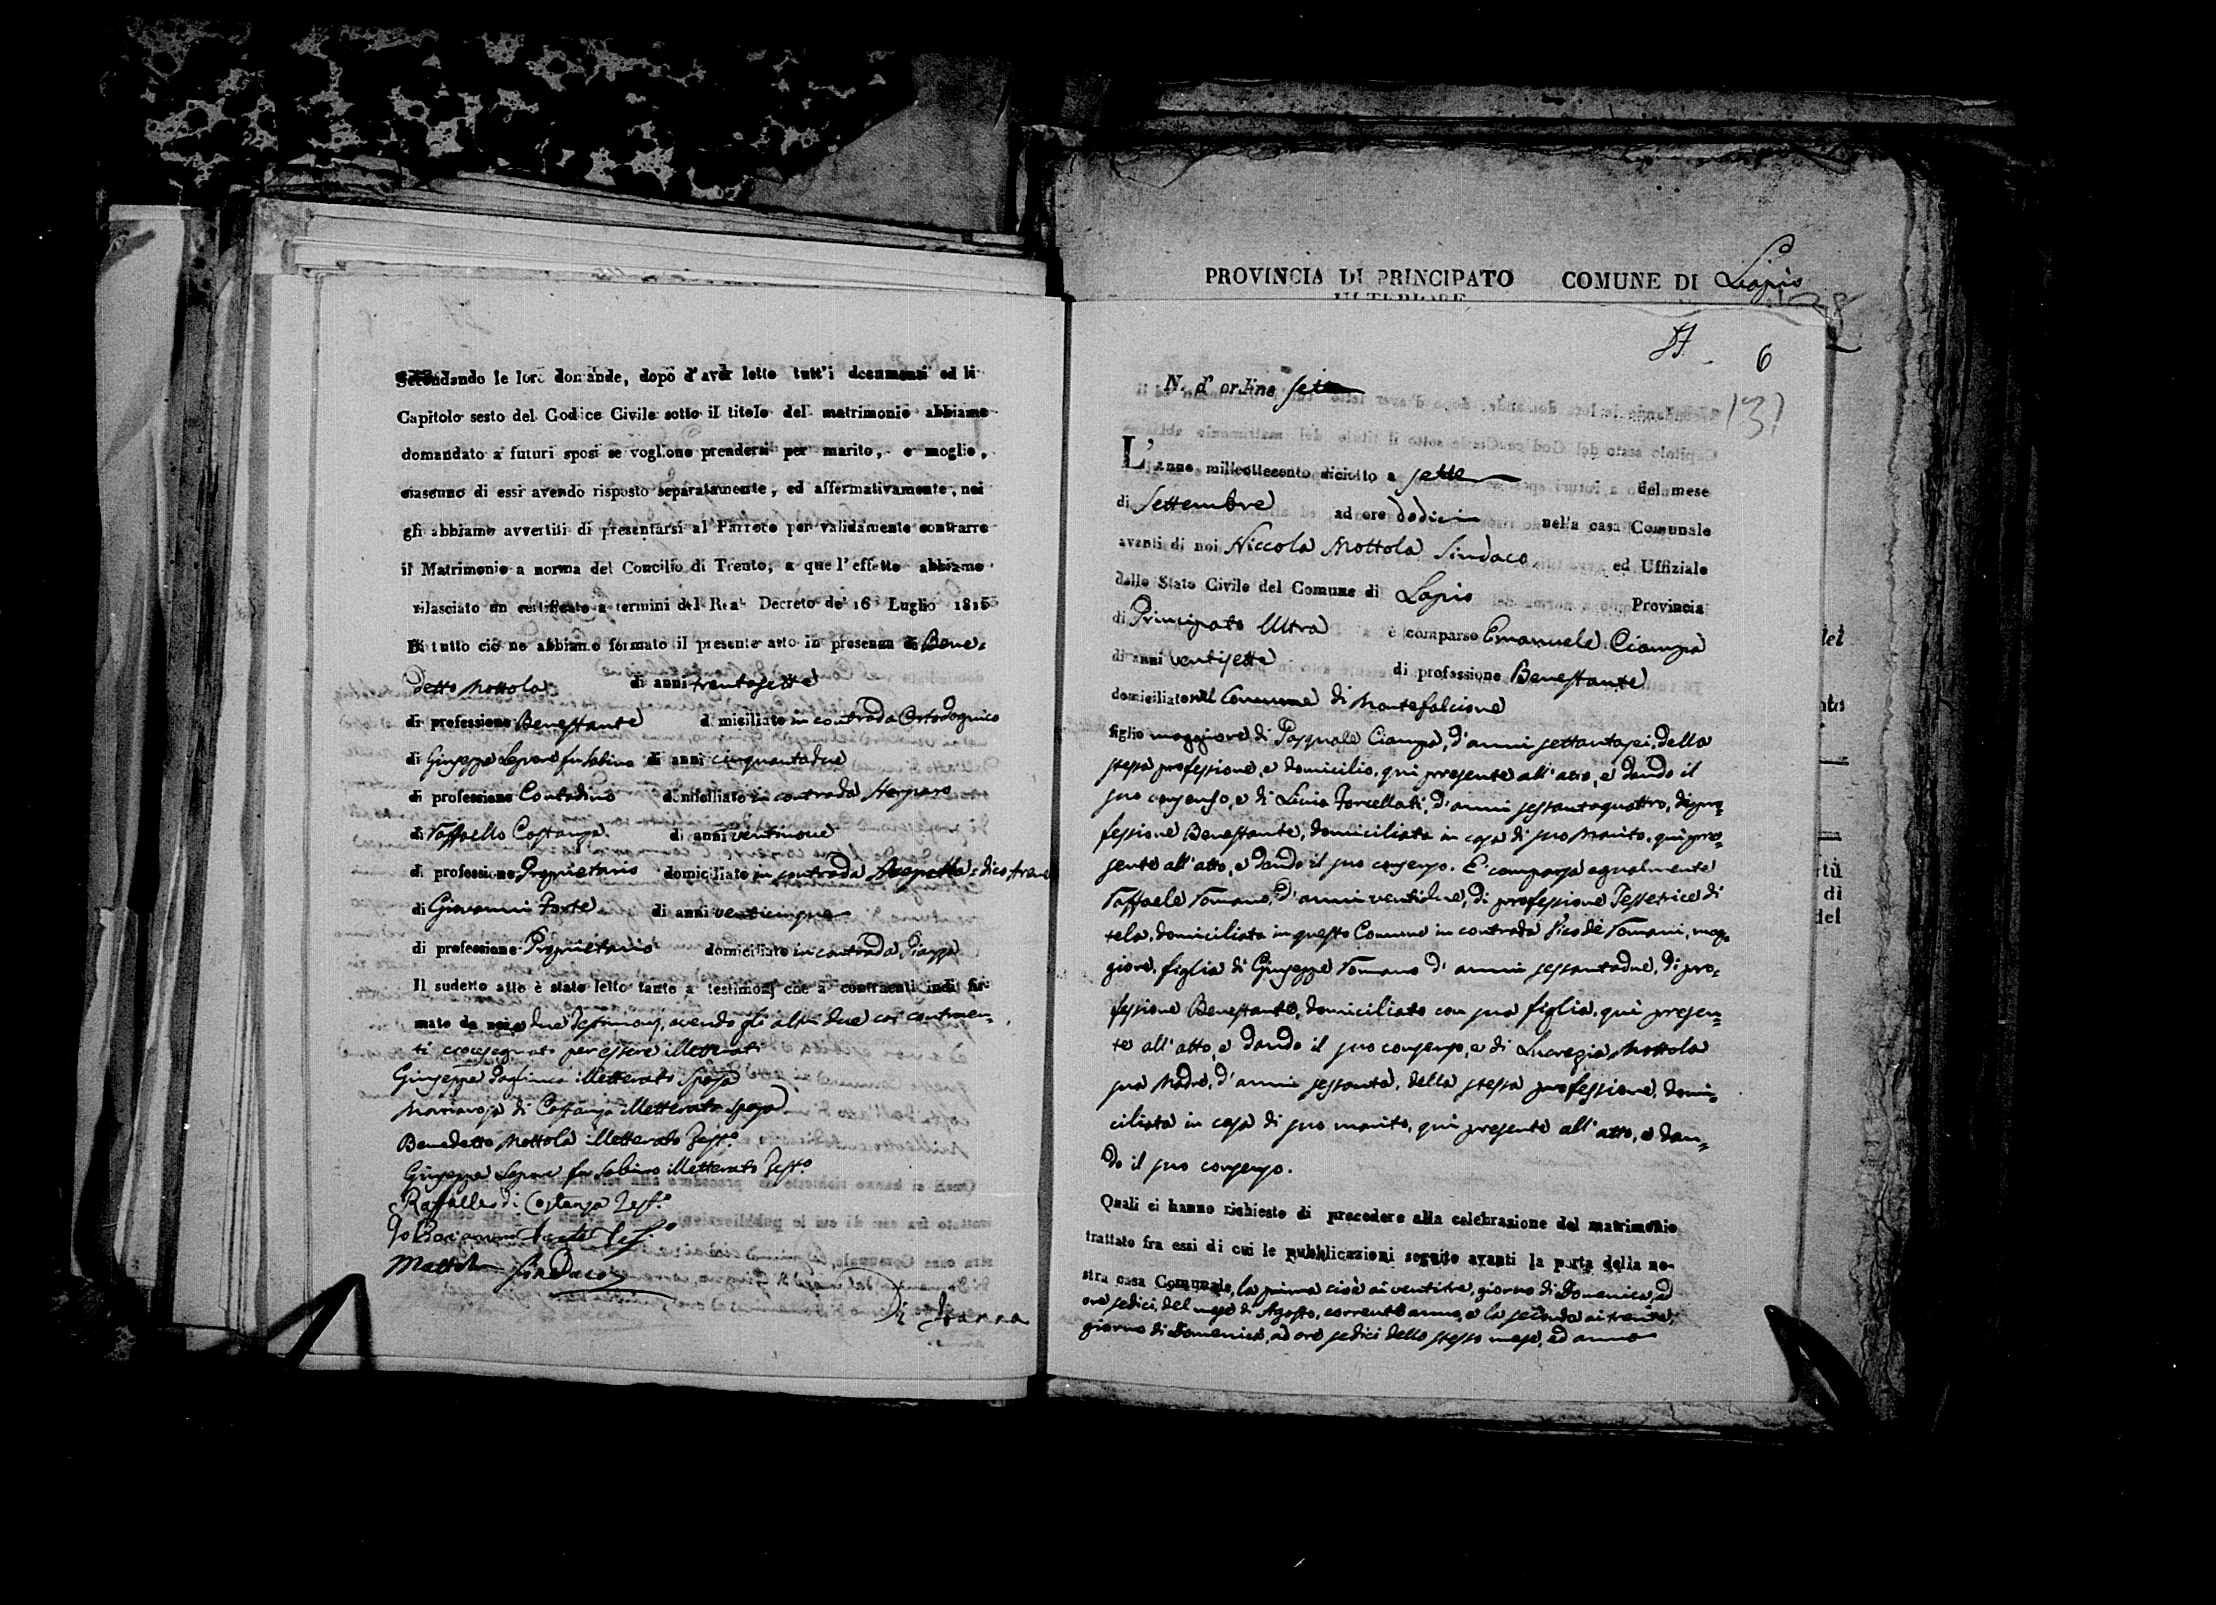 Secondando le loro domande, dopo d'aver letto tutt'i documenti ed li
Capitolo sesto del Codice Civile sotto il titolo del matrimonio abbiamo
domandato a futuri sposi se vogliono prendersi per marito, e moglie,
ciascuno di essi avendo risposto separatamente, ed affermativamente, noi
gli abbiamo avvertiti di presentarsi al Parroco per validamente contrarre
il Matrimonio a norma del Concilio di Trento, a que l'effetto abbiamo
rilasciato un certificato a termini del Real Decreto de' 16 Luglio 1815
Di tutto ciò ne abbiamo formato il presente atto in presenza di Bene-
detto Mottola di anni trentasette
di professione Benestante domiciliato in contrada Ortodognico
di Giuseppe Lepore fu Sabino di anni cinquantadue
di professione Contadino domiciliato in contrada
di Raffaello Costanza di anni ventinove
di professione Proprietario domiciliato in contrada dico
di Giovanni Forte di anni venticinque
di professione Proprietario domiciliato in contrada Piazza
Il sudetto atto è stato letto tanto a testimonj che a contraenti indi fir-
mato da noi e due Testimonj, avendo gli altri due coi contraen-
ti crocesegnato per essere illetterati
Giuseppe illetterato Sposo
Mariarosa di Costanza illetterata sposa
Benedetto Mottola illetterato Test.o
Giuseppe Lepore fu Sabino illetterato Test.o
Raffaello di Costanza Test.o
Io Forte Tes.o
Mottola Sindaco
Di Ianna
PROVINCIA DI PRINCIPATO COMUNE DI Lapio
ULTERIORE
6
N. d'ordine sette
131
L'anno milleottocento diciotto a sette del mese
di Settembre ad ore dodici nella casa Comunale
avanti di noi Niccola Mottola Sindaco ed Uffiziale
dello Stato Civile del Comune di Lapio Provincia
di Principato Ultra è comparso Emanuele Ciampa
di anni ventisette di professione Benestante
domiciliato nel Comune di Montefalcione
figlio maggiore di Pasquale Ciampa, d'anni settantasei, della
stessa professione, e domicilio, qui presente all'atto, e dando il
suo consenso, e di Livia Porcellati, d'anni sessantaquattro, di pro-
fessione Benestante, domiciliata in casa di suo Marito, qui pre-
sente all'atto, e dando il suo consenso. E comparsa egualmente
Raffaela Romano, d'anni ventidue, di professione Tessetrice di
tela, domiciliata in questo Comune in contrada Pico de Romani, mag-
giore, figlia di Giuseppe Romano d'anni sessantadue, di pro-
fessione Benestante, domiciliato con sua figlia, qui presen-
te all'atto, e dando il suo consenso, e di Lucrezia Mottola
sua Madre, d'anni sessanta, della stessa professione, domi-
ciliata in casa di suo marito, qui presente all'atto, e dan-
do il suo consenso.
Quali ci hanno richiesto di procedere alla celebrazione del matrimonio
trattato fra essi di cui le pubblicazioni seguite avanti la porta della no-
stra casa Comunale, la prima cioè ai ventitre, giorno di Domenica, ad
ore sedici, del mese di Agosto, corrente anno, e la seconda ai trenta,
giorno di Domenica, ad ore sedici dello stesso mese, ed anno